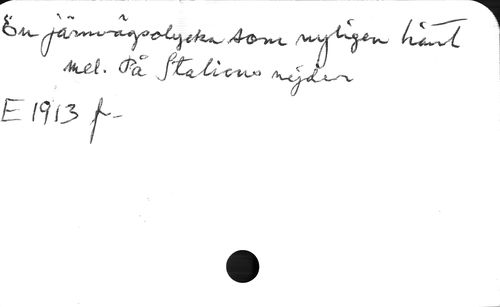 En järnvägsolycka som nyligen hänt
mel. På Italiens nejder
E 1913 f-